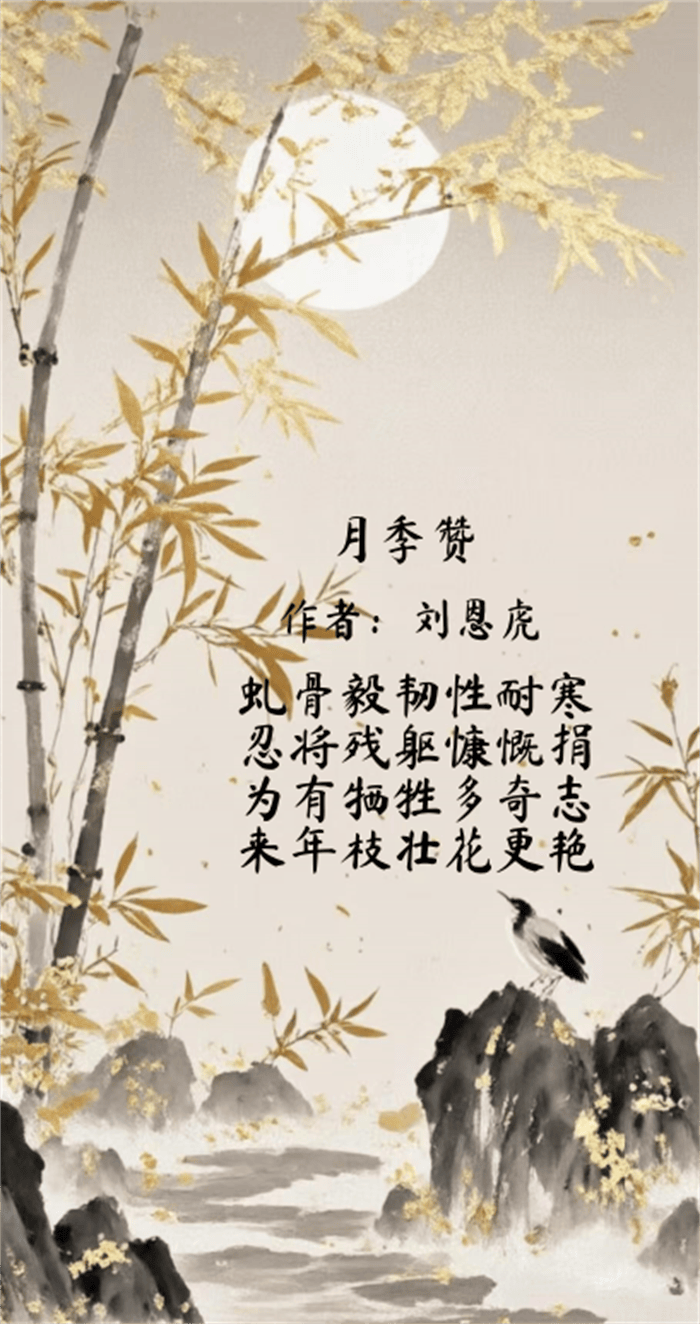 月季赞
作者：刘恩虎
虬骨毅韧性耐寒
忍将残躯慷慨捐
为有牺牲多奇志
来年枝壮花更艳